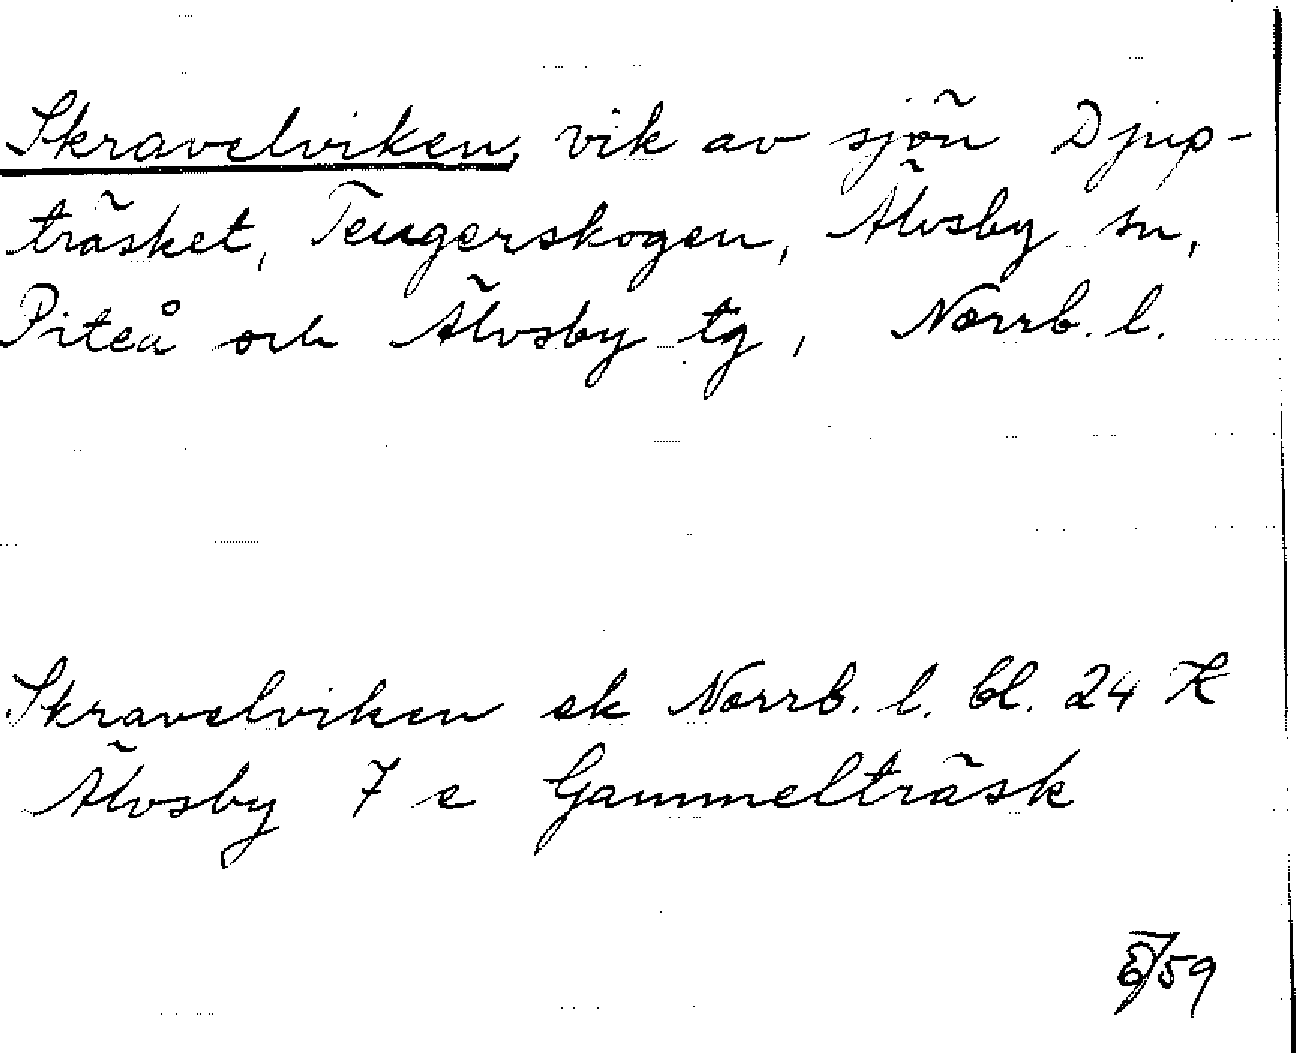 Skravelviken, vik av sjön Djup-
träsket, Teugerskogen, Älvsby sn,
Piteå och Älvsby tg, Norrb. l.
Skravelviken ek Norrb. l. bl. 24 K
Älvsby 7 e Gammelträsk
/59